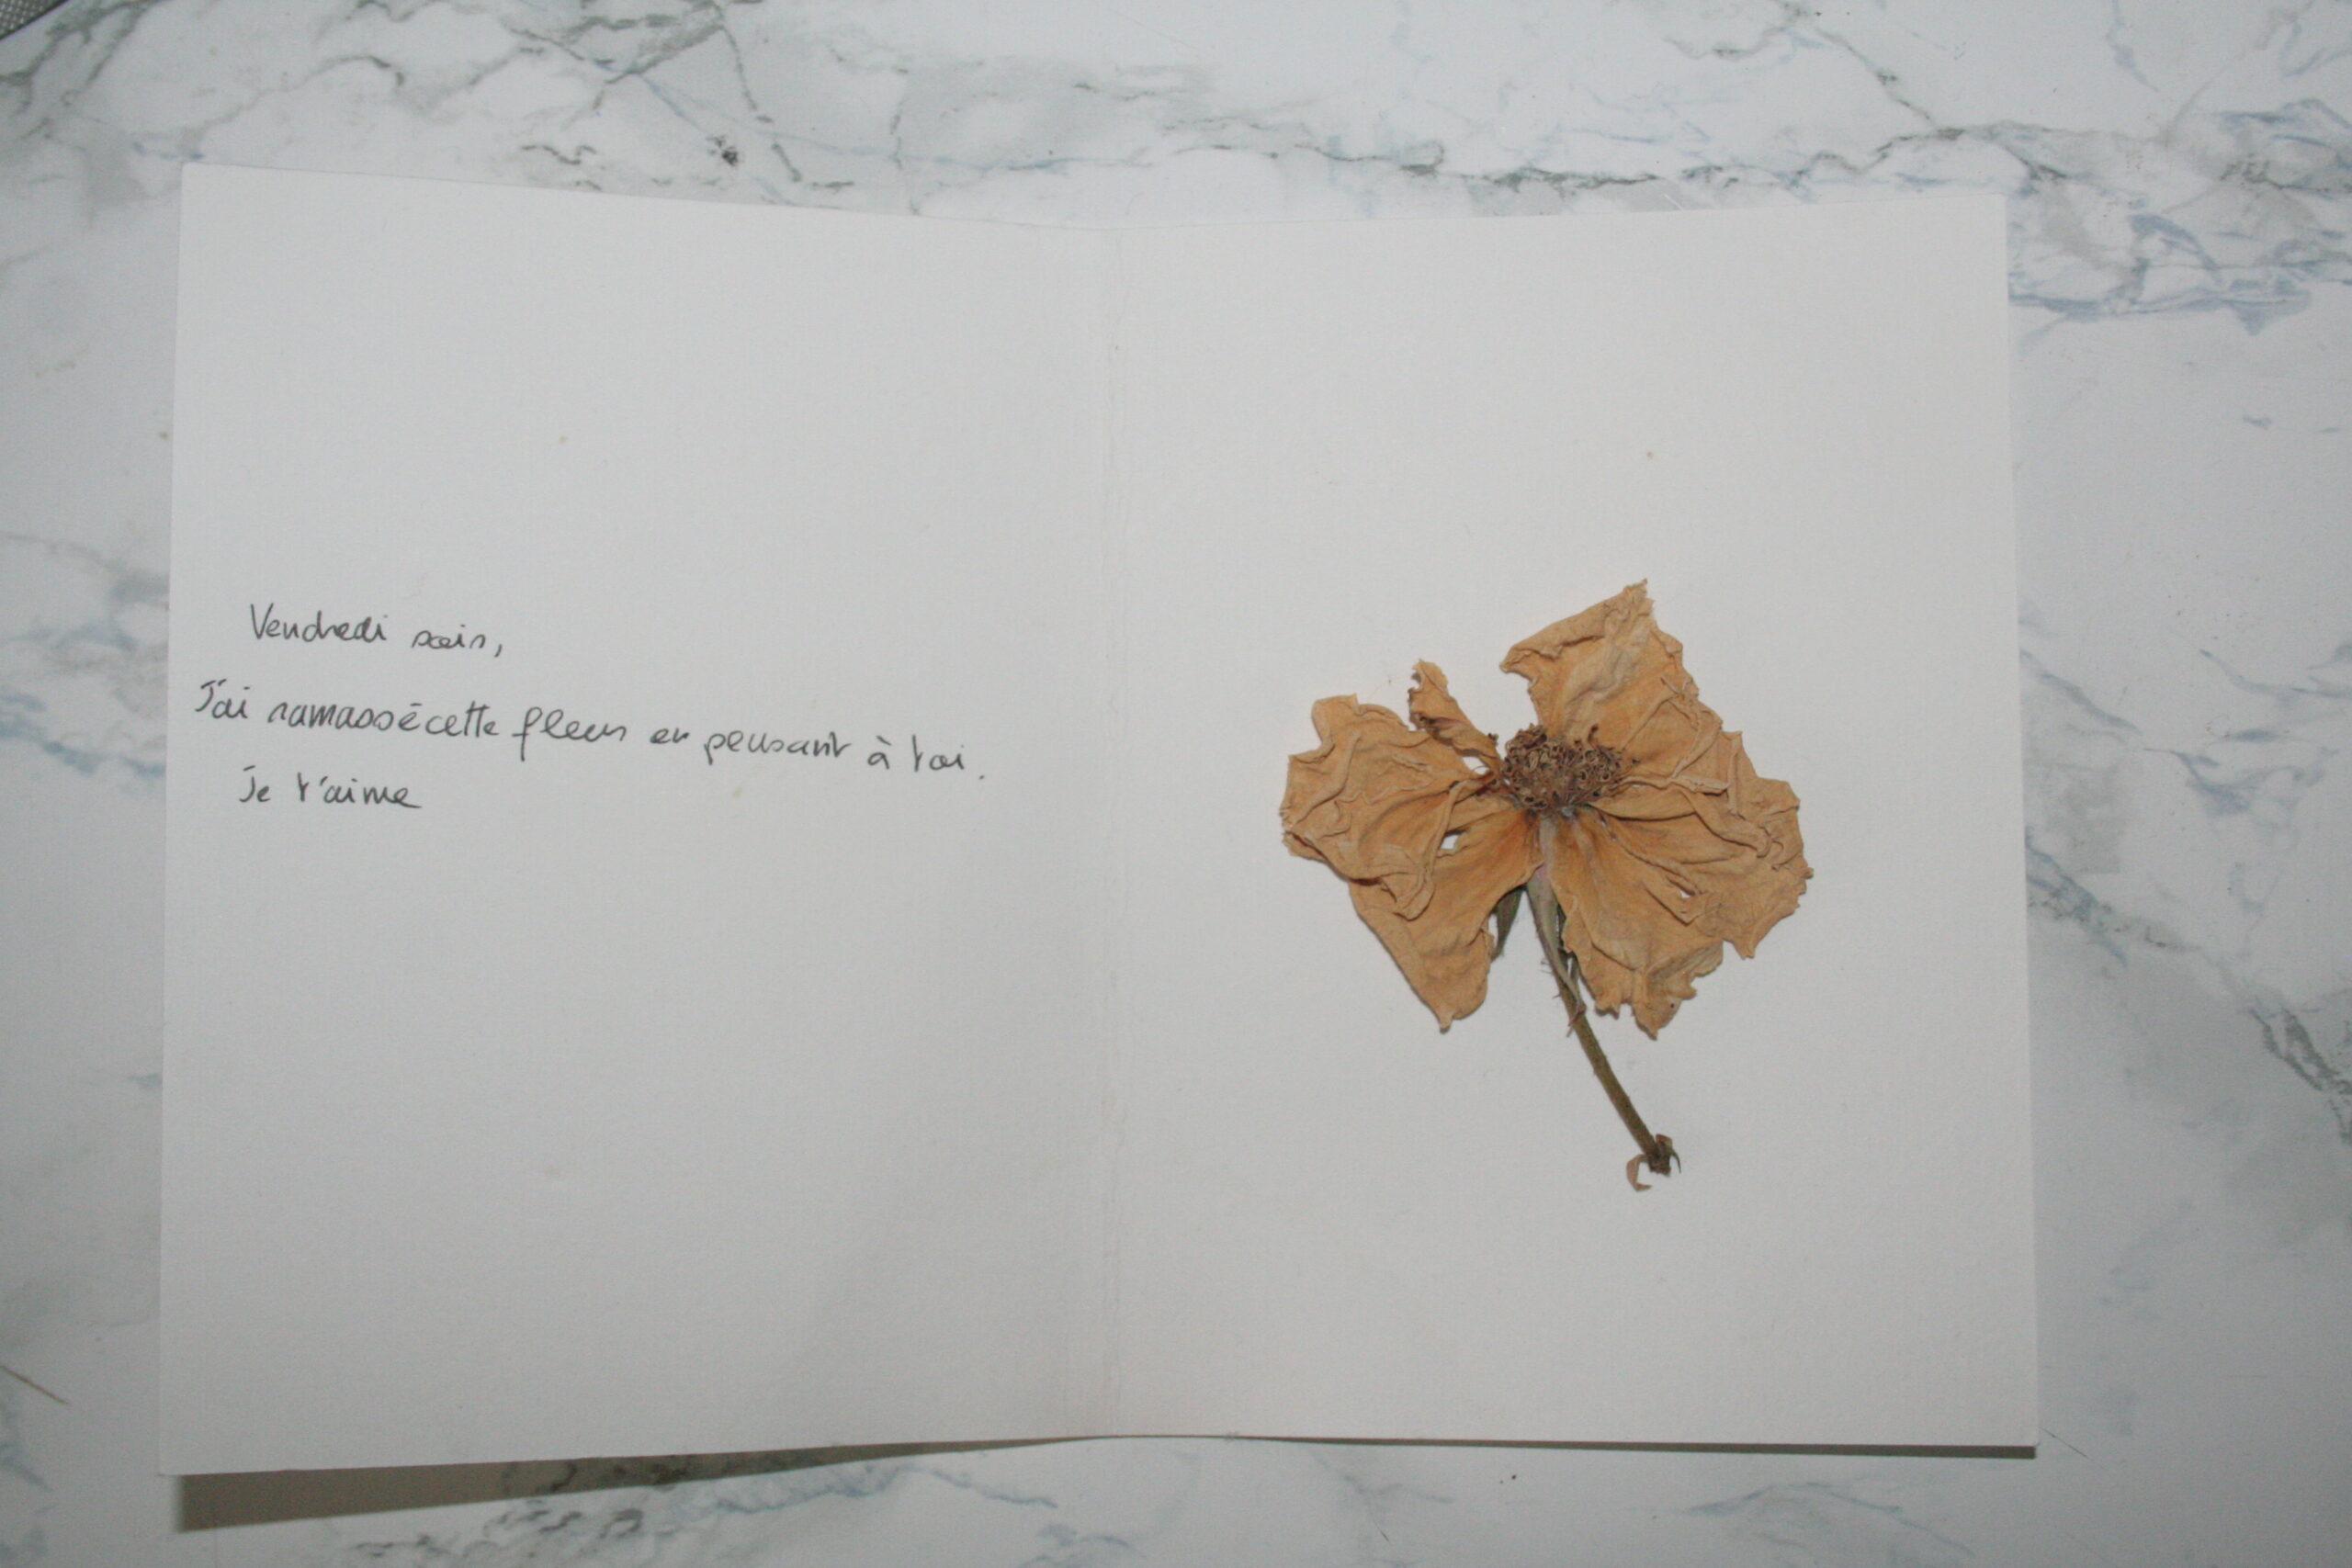 Vendredi soir,
J'ai ramassé cette fleur en pensant à toi.
Je t'aime